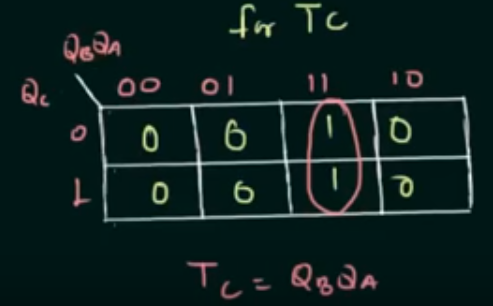 for TC
QBQA
QC 00 01 11 10
0 0 0 1 0
1 0 0 1 0
TC = QBQA